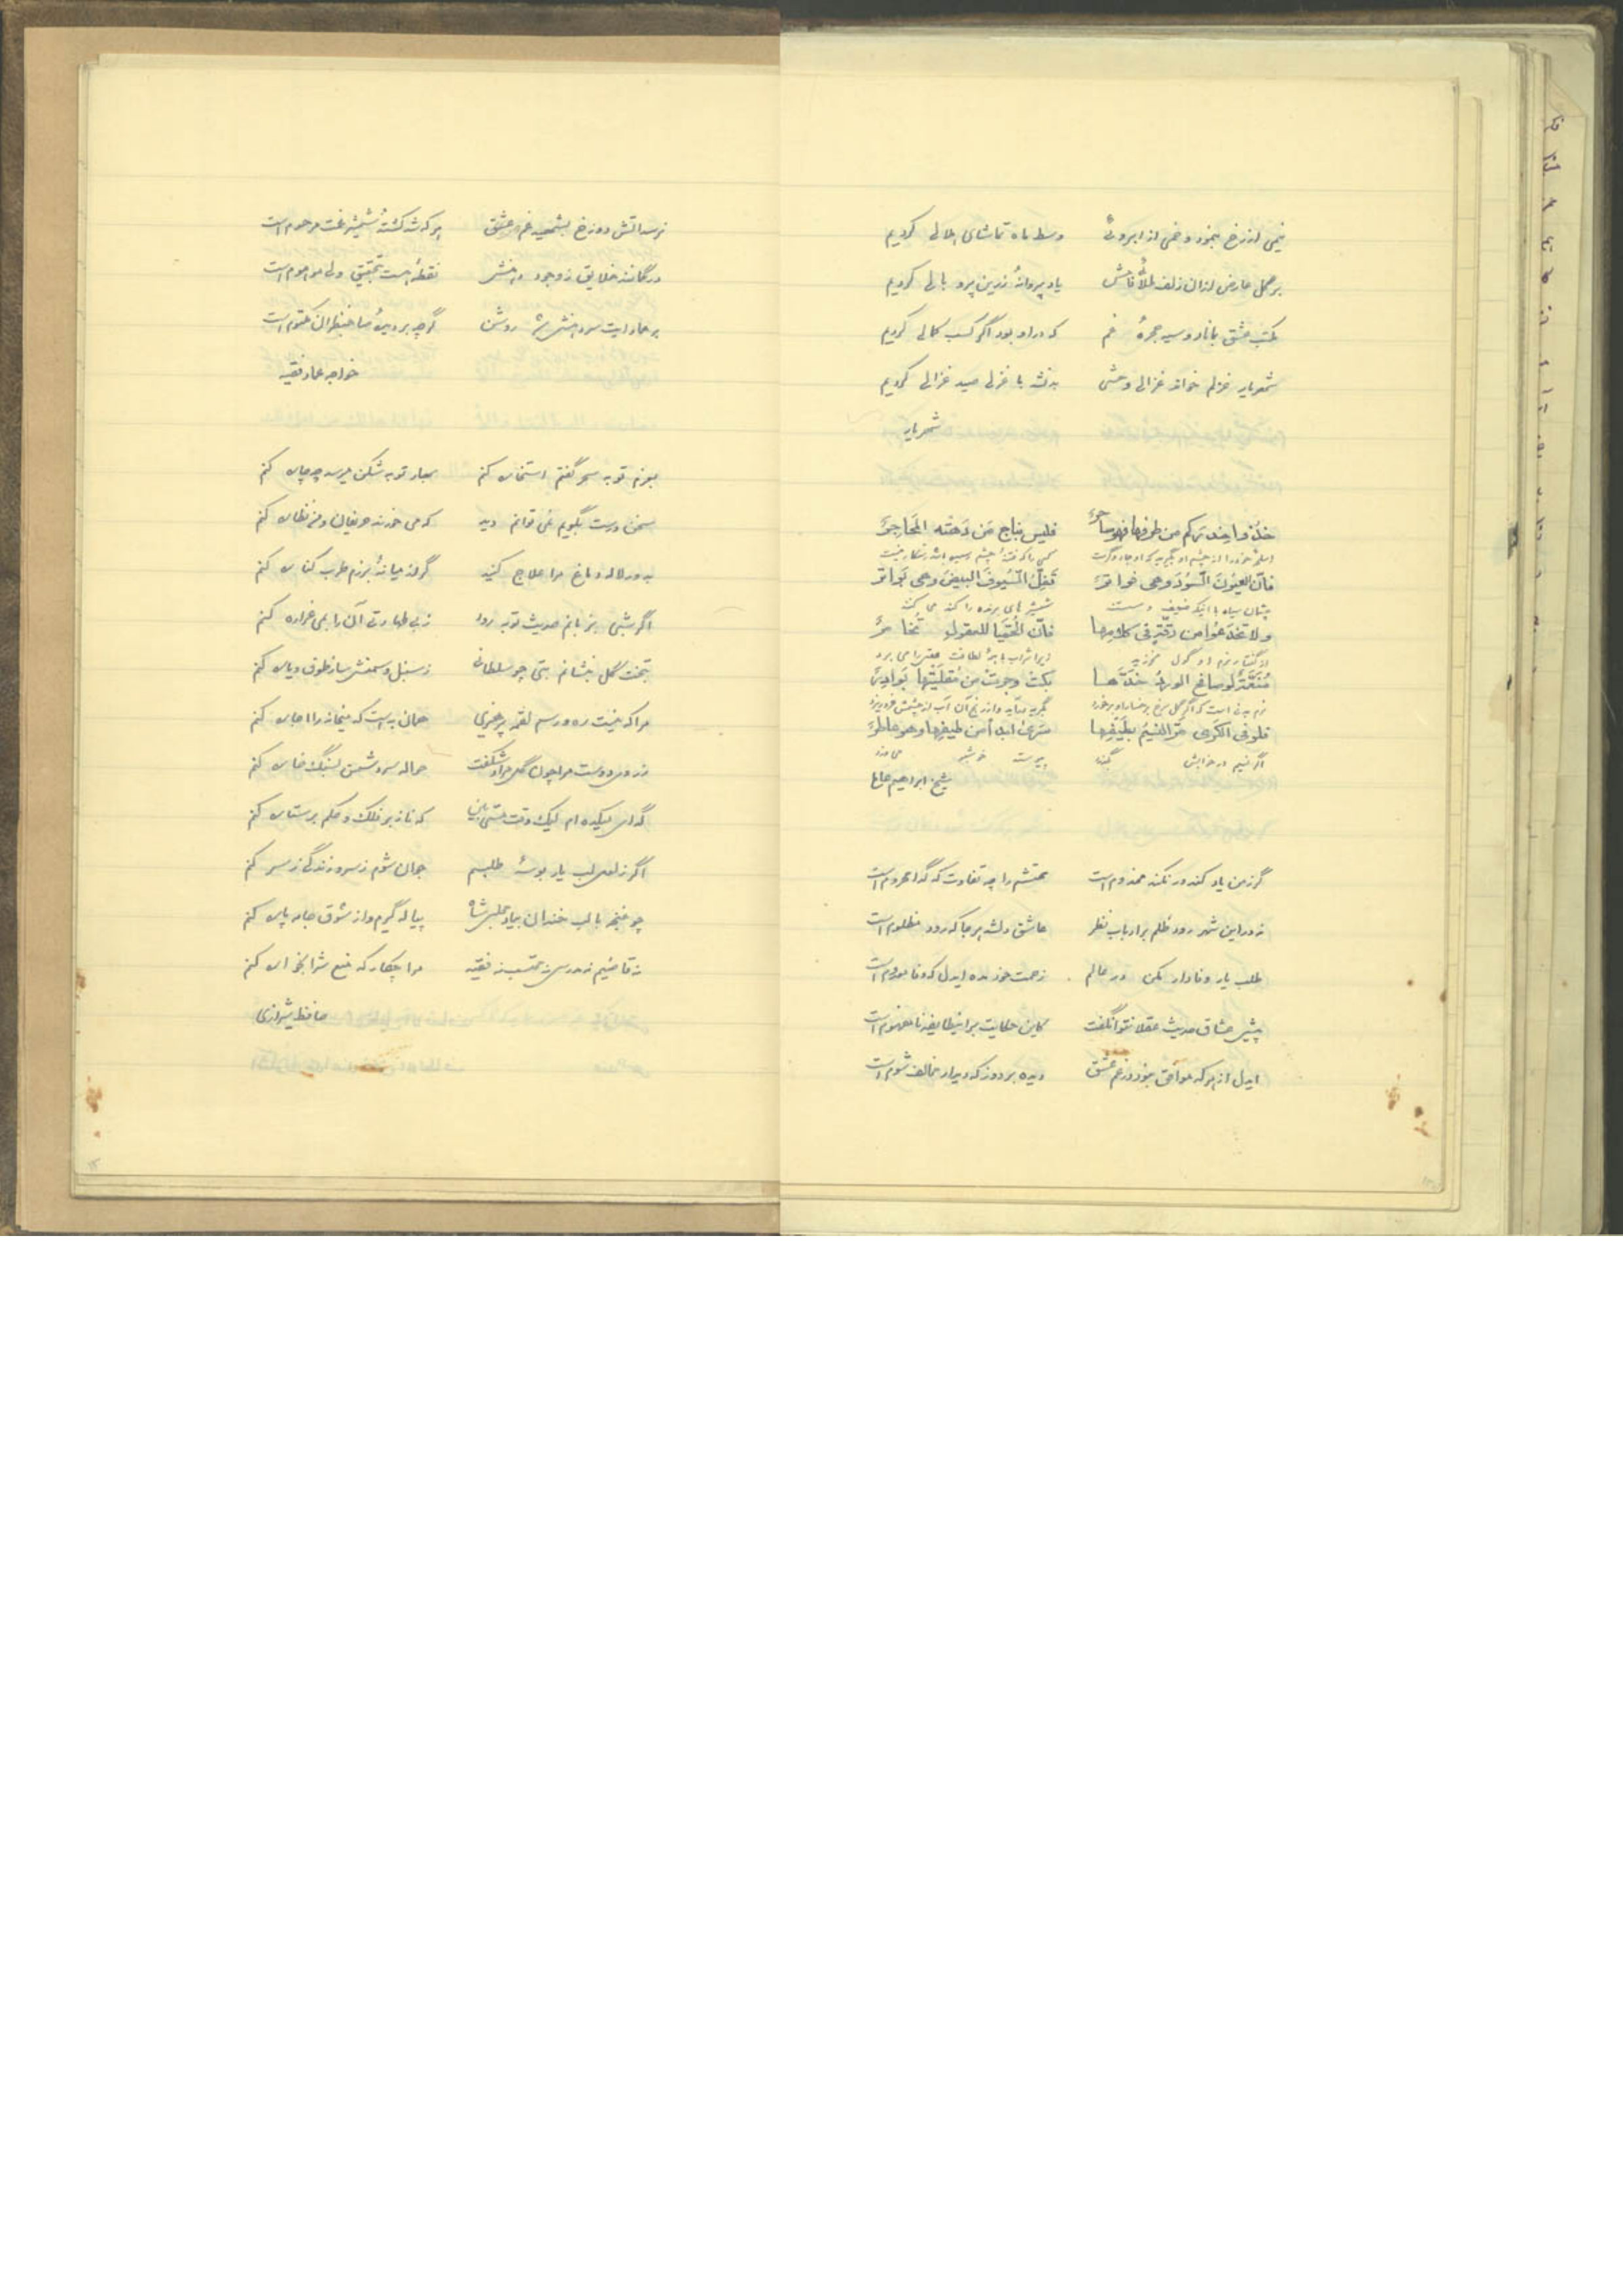 نیمی از رخ بنمود و خمی از ابروئی وسط ماه تماشای هلالی کردیم
بر گل عارض از آن زلف طلائی فامش یاد پروانهٔ زرین پر و بالی کردیم
مکتب عشق بماناد و سیه حجرهٔ غم که در او بود اگر کسب کمالی کردیم
شهریار غزلم خوانده غزالی وحشی بد نشد با غزلی صید غزالی کردیم
شهریار
خذوا حذرکم من طرفها فهو ساحر فلیس بناج من دهته المحاجر
فان العیون السود وهی فواتر تفل السیوف البیض وهی بواتر
چشمان سیاه با اینکه ضعیف است شمشیر های برنده را کند می کند
ولا تخدعوا من رقة فی کلامها فان الحمیا للعقول تخامر
منعمة لو صافح الورد خدها بکت وجرت من مقلتیها بوادر
فلو فی الکری مر النسیم بطیفها سری ابدا من طیفها وهو عاطر
شیخ ابراهیم
گر ز من یاد کند ور نکند مخدوم است محتشم را چه تفاوت که گدا محروم است
نه در این شهر رود ظلم بر ارباب نظر عاشق دلشده هر جا که رود مظلوم است
طلب یار وفادار مکن در عالم زحمت خود مده ایدل که وفا معدوم است
پیش عشاق حدیث عقلا نتوان گفت کاین حکایت بر اینطایفه نامفهوم است
ایدل از هر که موافق نبود در غم عشق دیده بردوز که دیدار مخالف شوم است
نرسد آتش دوزخ بشهید غم عشق هر که شد کشتهٔ شمشیر غمت مرحوم است
در گمانند خلایق ز وجود دهنش نقطهٔ هست بتحقیق ولی موهوم است
بر عماد آیت سر دهنش شد روشن گرچه بر دیدهٔ صاحبنظران مکتوم است
خواجه عماد فقیه
بعزم توبه سحر گفتم استخاره کنم بهار توبه شکن میرسد چه چاره کنم
سخن درست بگویم نمی توانم دید که می خورند حریفان و من نظاره کنم
بدور لاله دماغ مرا علاج کنید گر از میانهٔ بزم طرب کناره کنم
اگر شبی بزبانم حدیث توبه رود ز بی طهارتی آن را بمی غراره کنم
بتخت گل بنشانم بتی چو سلطانی ز سنبل و سمنش ساز طوق و یاره کنم
مرا که نیست ره و رسم لقمه پرهیزی همان به است که میخانه را اجاره کنم
ز روی دوست مرا چون گل مراد شکفت حواله سر دشمن بسنگ خاره کنم
گدای میکده ام لیک وقت مستی بین که ناز بر فلک و حکم بر ستاره کنم
اگر ز لعل لب یار بوسهٔ طلبم جوان شوم ز سر و زندگی ز سر کنم
چو غنچه با لب خندان بیاد مجلس شاه پیاله گیرم و از شوق جامه پاره کنم
نه قاضیم نه مدرس نه محتسب نه فقیه مرا چکار که منع شرابخواره کنم
حافظ شیرازی